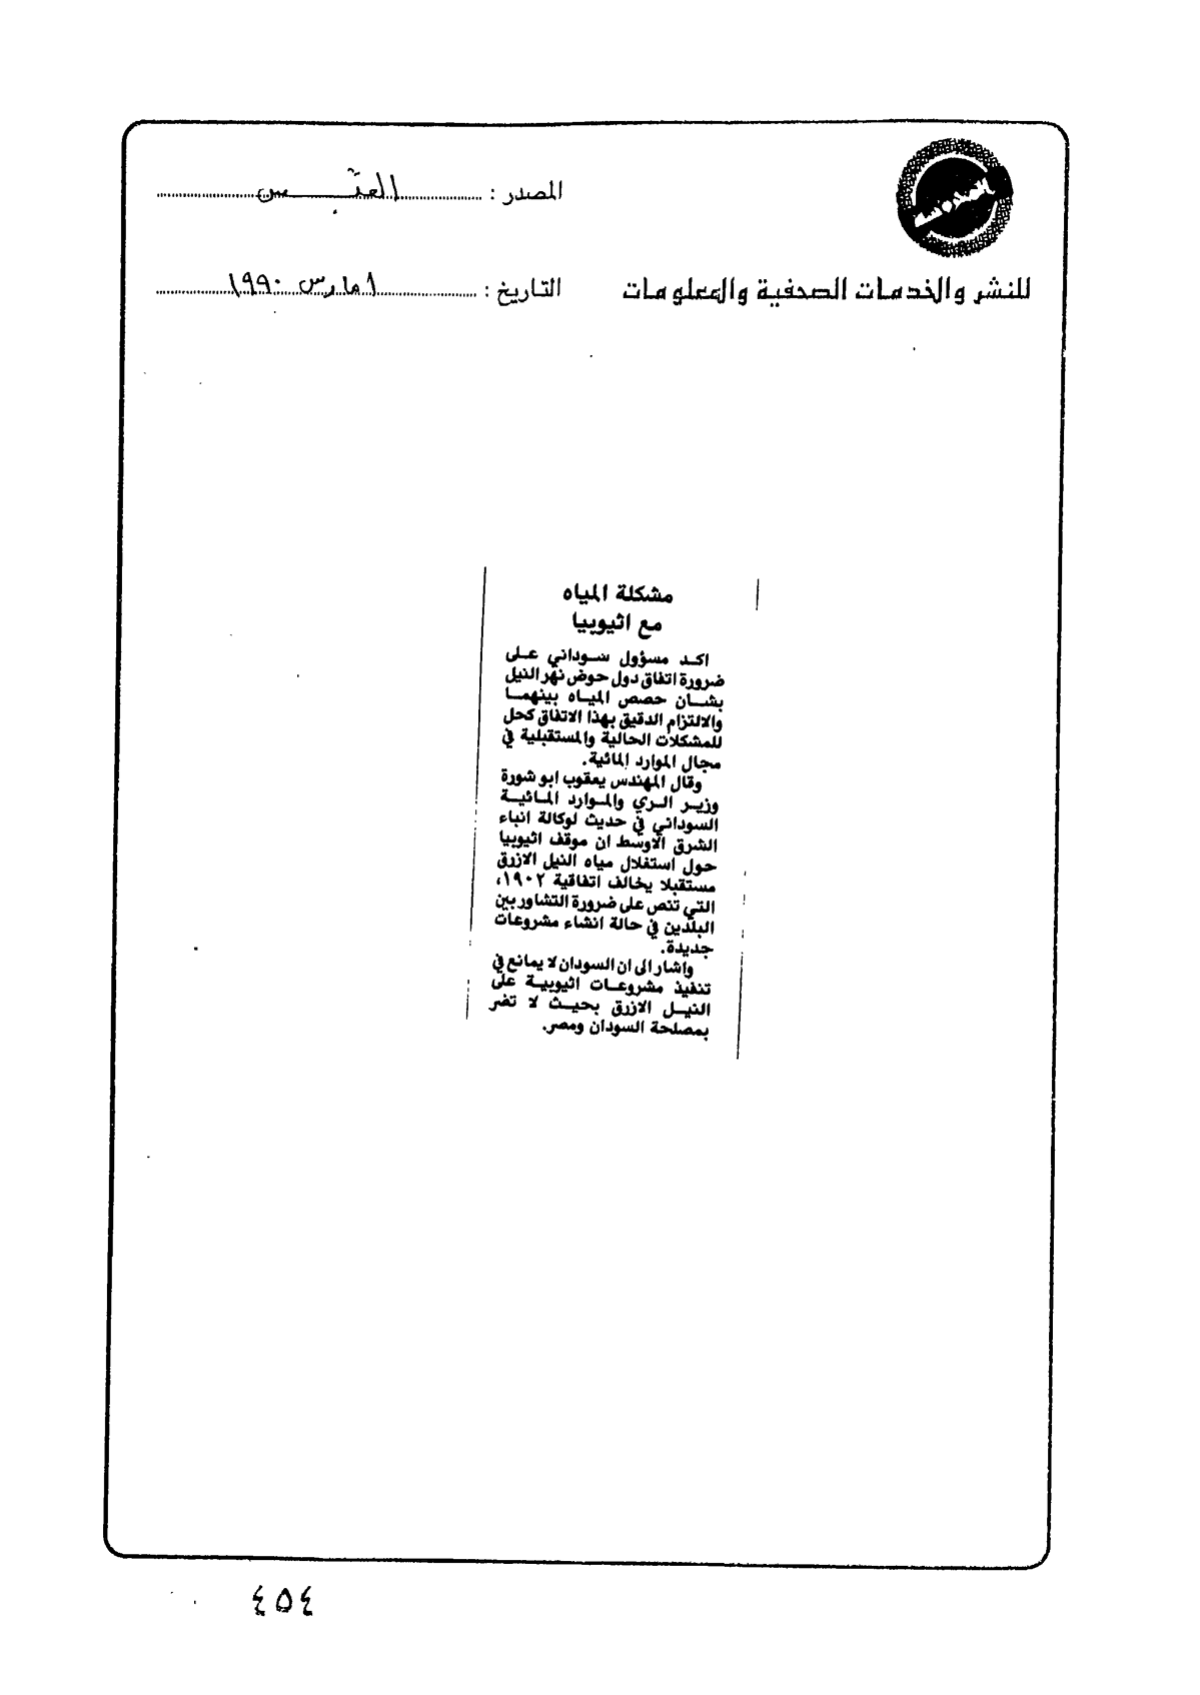 المصدر : القبس
للنشر والخدمات الصحفية والمعلومات
التاريخ : ١ مارس ١٩٩٠
مشكلة المياه
مع اثيوبيا
اكد مسؤول سوداني على
ضرورة اتفاق دول حوض نهر النيل
بشان حصص المياه بينهما
والالتزام الدقيق بهذا الاتفاق كحل
للمشكلات الحالية والمستقبلية في
مجال الموارد المائية.
وقال المهندس يعقوب ابو شورة
وزير الري والموارد المائية
السوداني في حديث لوكالة انباء
الشرق الاوسط ان موقف اثيوبيا
حول استغلال مياه النيل الازرق
مستقبلا يخالف اتفاقية ١٩٠٢،
التي تنص على ضرورة التشاور بين
البلدين في حالة انشاء مشروعات
جديدة.
واشار الى ان السودان لا يمانع في
تنفيذ مشروعات اثيوبية على
النيل الازرق بحيث لا تضر
بمصلحة السودان ومصر.
٤٥٤